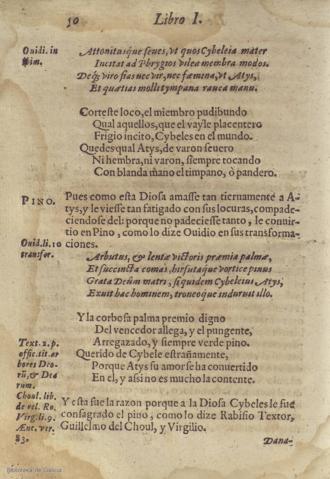 50 Libro I.
Ouidi. in
Attonitusque seues, vt quos Cybeleia mater
Incitat ad Phrygios vilea membra modos.
Deq; viro fias nec vir, nec fæmina, vt Atys,
Et quatias molli tympana rauca manu.
Corteste loco, el miembro pudibundo
Qual aquellos, que el vayle placentero
Frigio incito, Cybeles en el mundo.
Quedes qual Atys, de varon seuero
Ni hembra, ni varon, siempre tocando
Con blanda mano el timpano, ò pandero.
PINO.
Pues como esta Diosa amasse tan tiernamente à A-
tys, y le viesse tan fatigado con sus locuras, compade-
ciendose del: porque no padeciesse tanto, le conuir-
tio en Pino, como lo dize Ouidio en sus transforma-
ciones.
Ouid. li. 10
transfor.
Arbutus, & lentæ victoris præmia palmæ,
Et succincta comas, hirsutaque vortice pinus
Grata Deûm matri, siquidem Cybeleius Atys,
Exuit hac hominem, troncoque induruit illo.
Y la corbosa palma premio digno
Del vencedor allega, y el pungente,
Arregazado, y siempre verde pino.
Querido de Cybele estrañamente,
Porque Atys su amor se ha conuertido
En el, y assi no es mucho la contente.
Text. 2. p.
offic. tit. ar
bores Deo-
rū, & Dea
rum.
Choul. lib.
de vel. Ro.
Virg. li. 9.
Æne. ver.
83.
Y esta fue la razon porque a la Diosa Cybeles le fue
consagrado el pino, como lo dize Rabisio Textor,
Guillelmo del Choul, y Virgilio.
Dana-
Biblioteca de Galicia